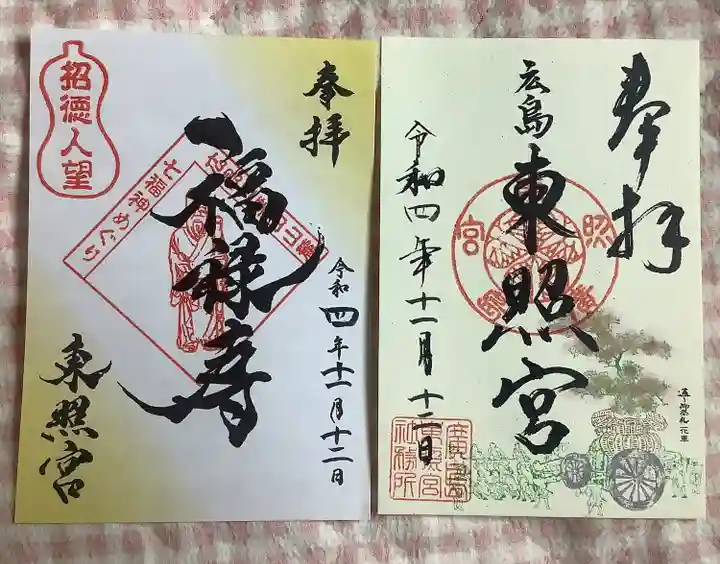 奉拝
広島東照宮
令和四年十一月十二日
廣島
東照宮
社務所
通り御祭礼 花車
奉拝
福禄寿
七福神めぐり
令和四年十一月十二日
招徳人望
東照宮